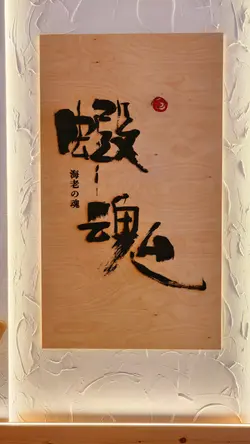 蝦
魂
海老の魂